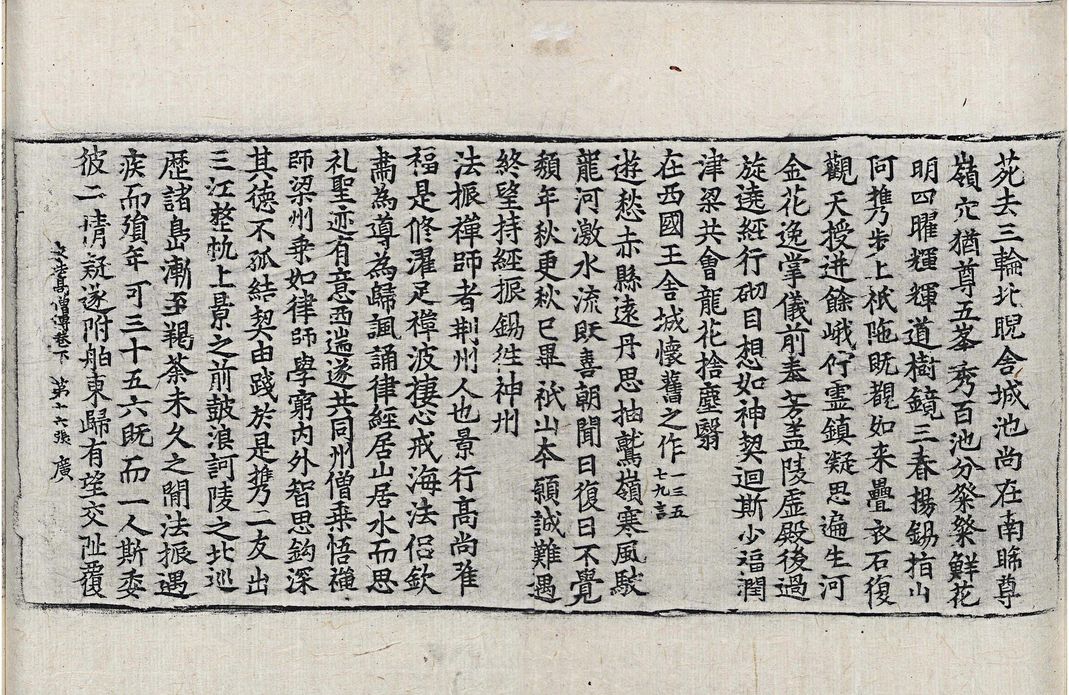 苑去三輪北睨舎城池尚在南睎尊
嶺穴猶尊五峯秀百池分粲粲鮮花
明四曜輝輝道樹鏡三春揚錫指山
阿携步上祇陁既覩如来疊衣石復
觀天授迸餘峨佇靈鎮凝思遍生河
金花逸掌儀前奉芳盖陵虚殿後過
旋遶經行砌目想如神契迴斯少福潤
津梁共會龍花捨塵翳
在西國王舎城懷舊之作 一三五七九言
遊愁赤縣遠丹思抽鷲嶺寒風駛
龍河激水流旣喜朝聞日復日不覺
頹年秋更秋已畢祇山本願誠難遇
終望持經振錫徃神州
法振禪師者荆州人也景行高尚唯
福是修濯足禪波棲心戒海法侣欽
肅為導為歸諷誦律經居山居水而思
礼聖迹有意西遄遂共同州僧乗悟禪
師梁州乗如律師學窮内外智思鈎深
其德不孤結契由踐於是携二友出
三江整帆上景之前鼓浪訶陵之北巡
歴諸島漸至羯荼未久之間法振遇
疾而殞年可三十五六既而一人斯委
彼二情疑遂附舶東歸有望交阯覆
求法髙僧傳卷下 第十六張 廣